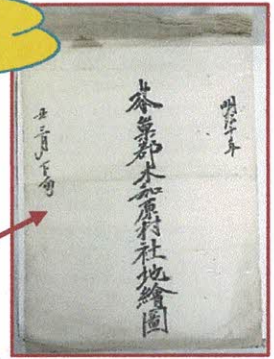 明治十年
本巣郡木知原村社地繪圖
丑三月下旬